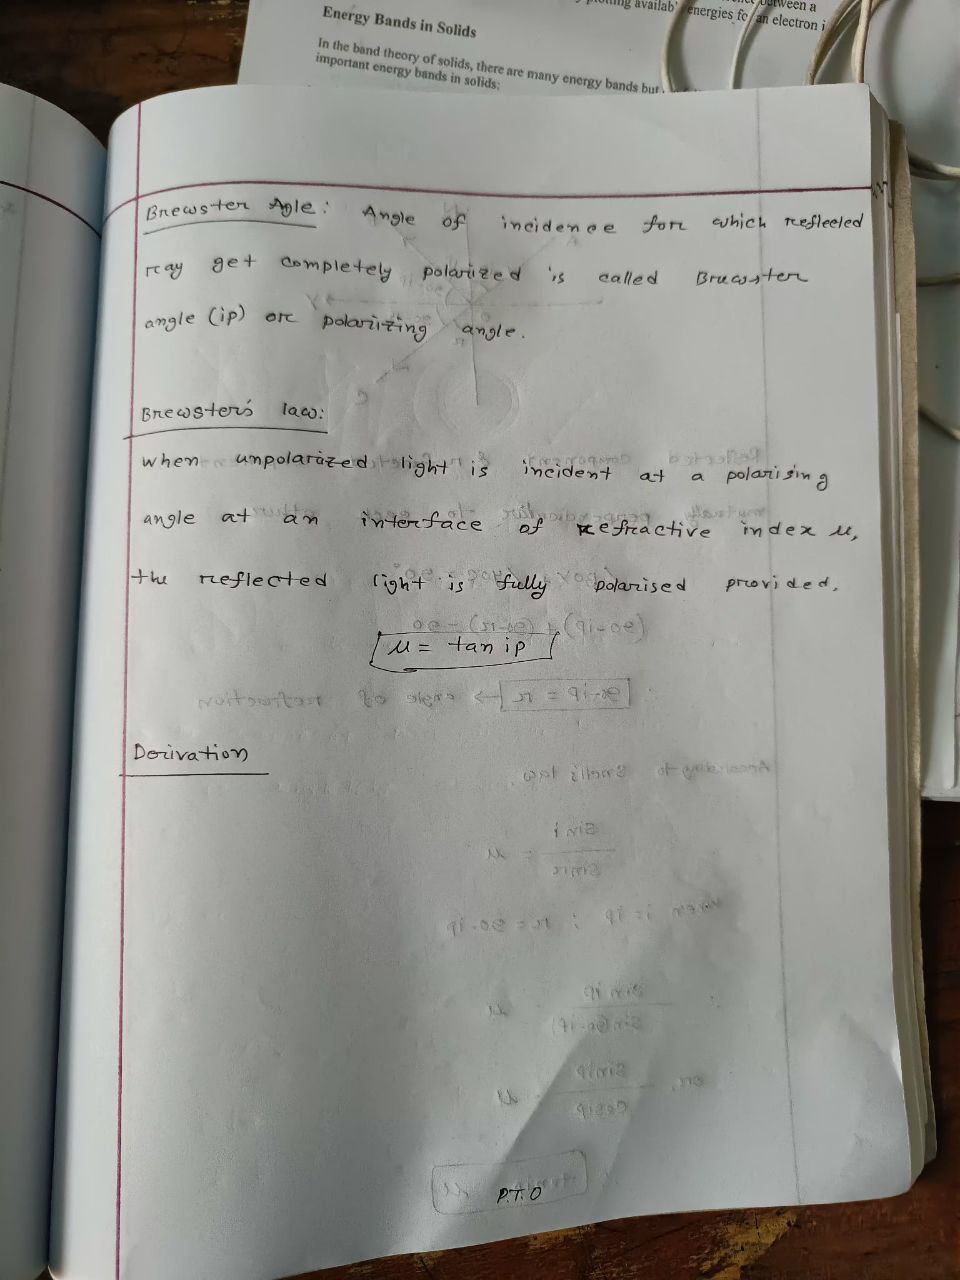 available energies for an electron i
Energy Bands in Solids
In the band theory of solids, there are many energy bands but
important energy bands in solids;
Brewster Agle: Angle of incidence for which reflected
ray get completely polarized is called Brewster
angle (ip) or polarizing angle.
Brewster's law:
When unpolarized light is incident at a polarising
angle at an interface of refractive index μ,
the reflected light is fully polarised provided,
μ = tan ip
Derivation
P.T.O